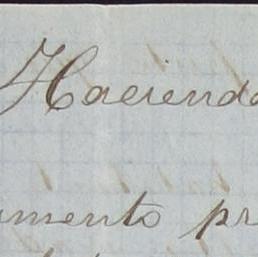 Hacienda
amento pr